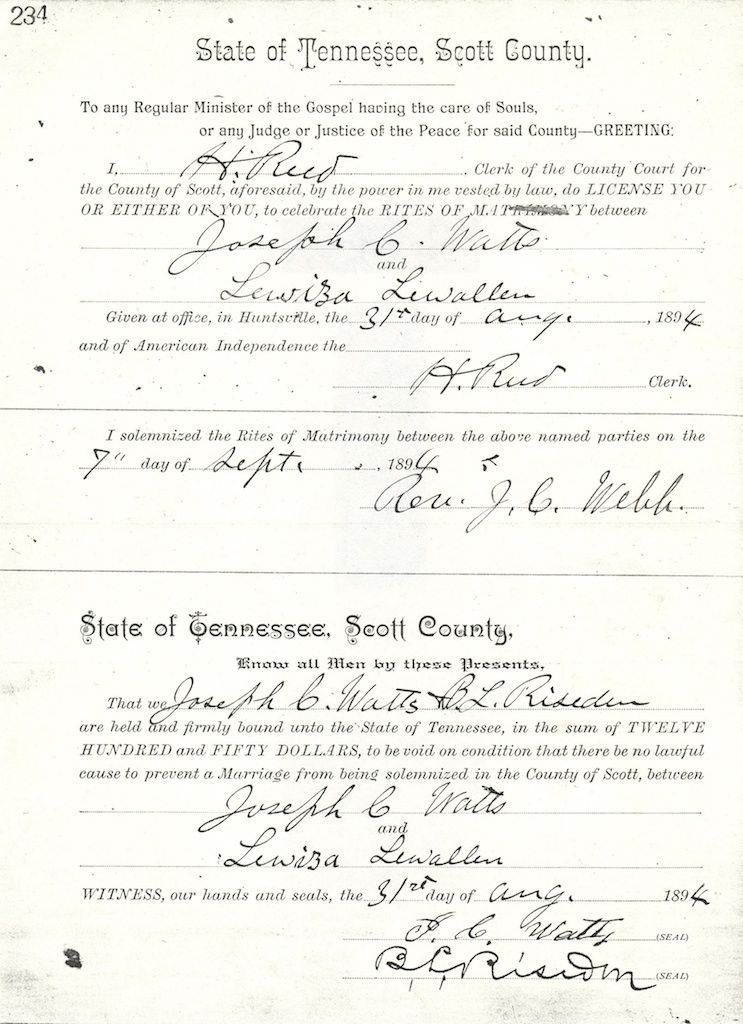 234
State of Tennessee, Scott County.
To any Regular Minister of the Gospel having the care of Souls,
or any Judge or Justice of the Peace for said County—GREETING:
I, H. Reed, Clerk of the County Court for
the County of Scott, aforesaid, by the power in me vested by law, do LICENSE YOU
OR EITHER OF YOU, to celebrate the RITES OF MATRIMONY between
Joseph C. Watts
and
Lewiza Lewallen
Given at office, in Huntsville, the 31st day of aug. , 1894
and of American Independence the
H. Reed Clerk.
I solemnized the Rites of Matrimony between the above named parties on the
7" day of Sept. , 1894
Rev. J. C. Webb.
State of Tennessee, Scott County,
Know all Men by these Presents,
That we Joseph C. Watts & B. L. Riseden
are held and firmly bound unto the State of Tennessee, in the sum of TWELVE
HUNDRED and FIFTY DOLLARS, to be void on condition that there be no lawful
cause to prevent a Marriage from being solemnized in the County of Scott, between
Joseph C Watts
and
Lewiza Lewallen
WITNESS, our hands and seals, the 31st day of aug. 1894
J. C. Watts (SEAL)
B L Riseden (SEAL)